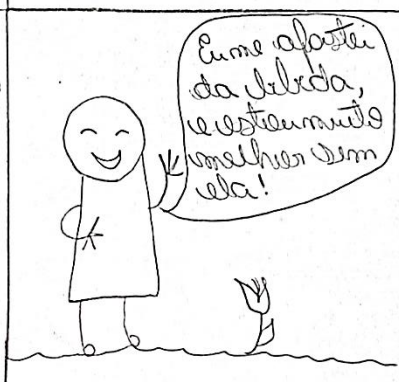 Eu me afastei
da bebida,
e estou muito
melhor sem
ela!